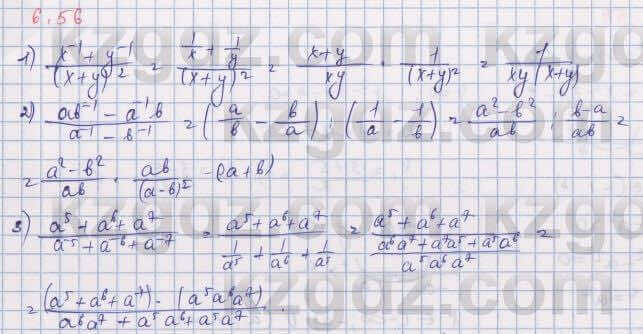 6.56
1) \frac{x^{-1}+y^{-1}}{(x+y)^2} = \frac{\frac{1}{x}+\frac{1}{y}}{(x+y)^2} = \frac{x+y}{xy} \cdot \frac{1}{(x+y)^2} = \frac{1}{xy(x+y)}
2) \frac{ab^{-1}-a^{-1}b}{a^{-1}-b^{-1}} = (\frac{a}{b}-\frac{b}{a}) : (\frac{1}{a}-\frac{1}{b}) = \frac{a^2-b^2}{ab} : \frac{b-a}{ab} =
= \frac{a^2-b^2}{ab} \cdot \frac{ab}{(a-b)^2} -(a+b)
3) \frac{a^5+a^6+a^7}{a^{-5}+a^{-6}+a^{-7}} = \frac{a^5+a^6+a^7}{\frac{1}{a^5}+\frac{1}{a^6}+\frac{1}{a^5}} = \frac{a^5+a^6+a^7}{\frac{a^6a^7+a^7a^5+a^5a^6}{a^5a^6a^7}} =
= \frac{(a^5+a^6+a^7) \cdot (a^5a^6a^7)}{a^6a^7+a^5a^6+a^5a^7} .
kzgdz.com